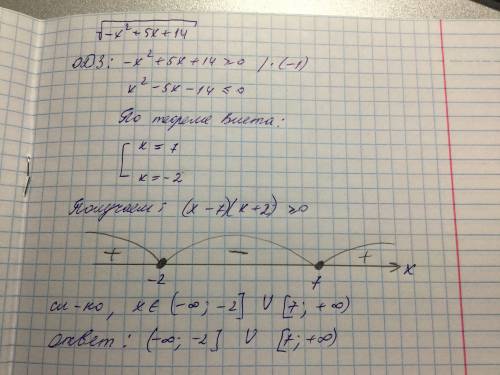 √-x²+5x+14
ОДЗ: -x²+5x+14≥0 /·(-1)
x²-5x-14≤0
По теореме Виета:
[ x=7
x=-2
Получаем: (x-7)(x+2)≥0
+ - +
-2 7 x
сл-но, x∈(-∞; -2] ∪ [7; +∞)
ответ: (-∞; -2] ∪ [7; +∞)